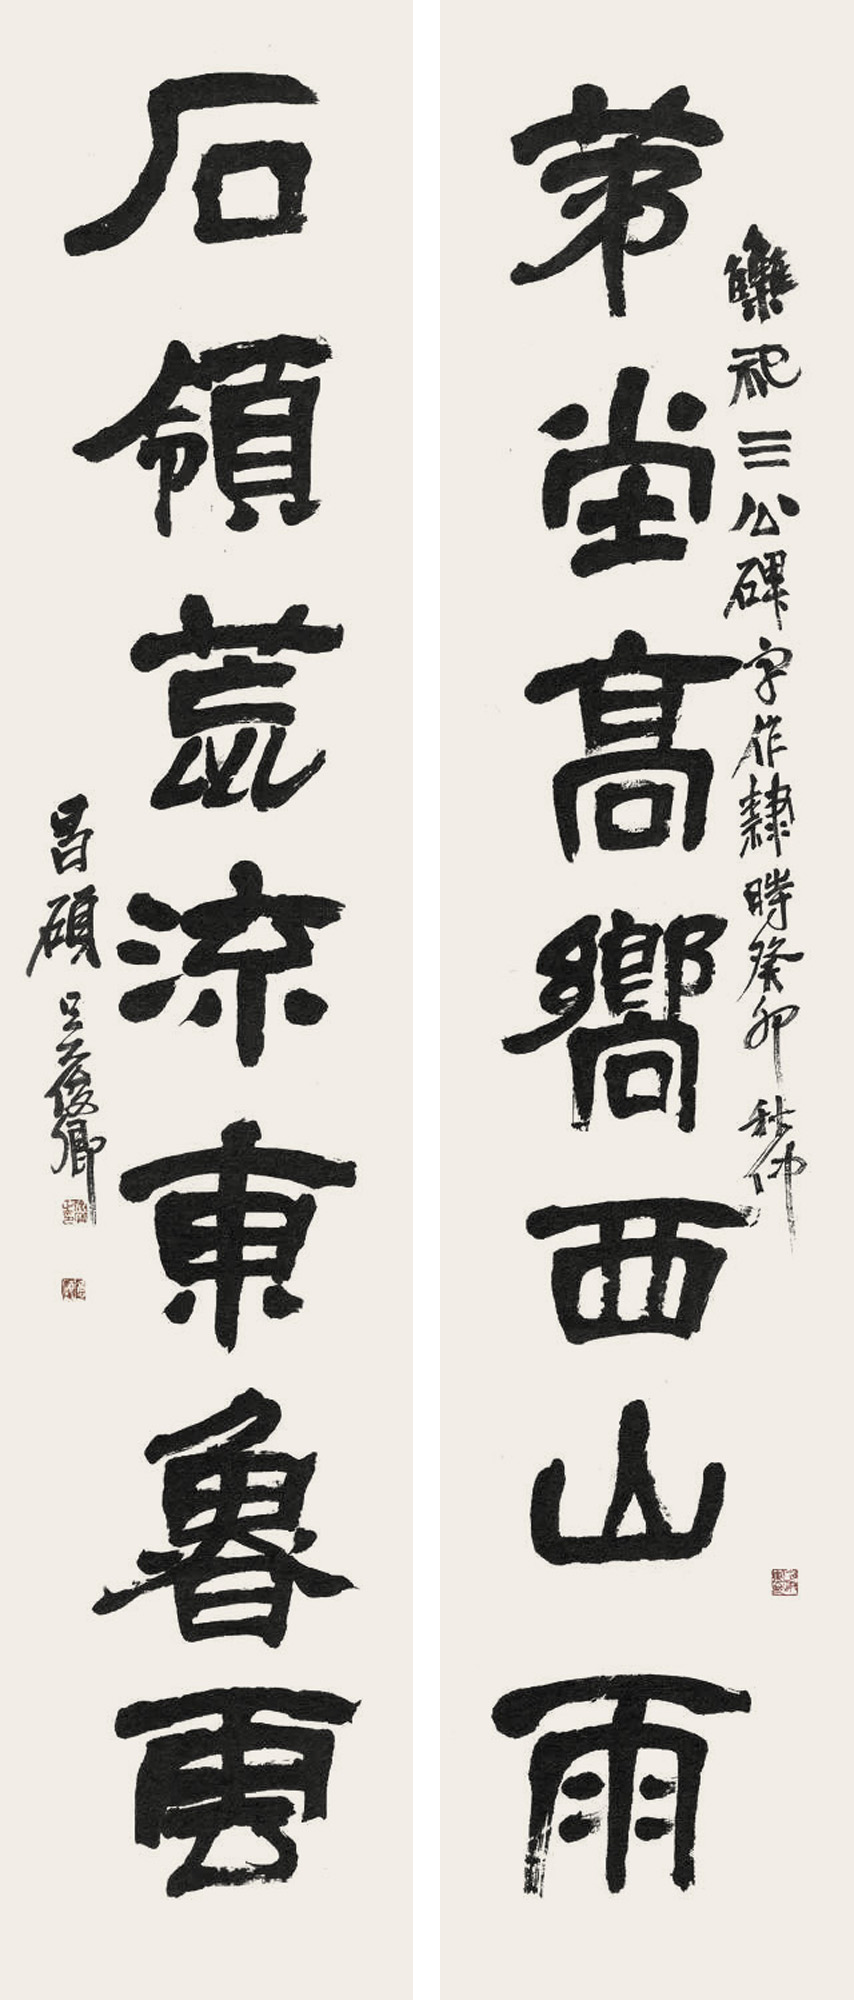 雧祀三公碑字作隸時癸卯秋仲
苐堂高響西山雨
石領荒流東魯雲
昌碩吳俊卿